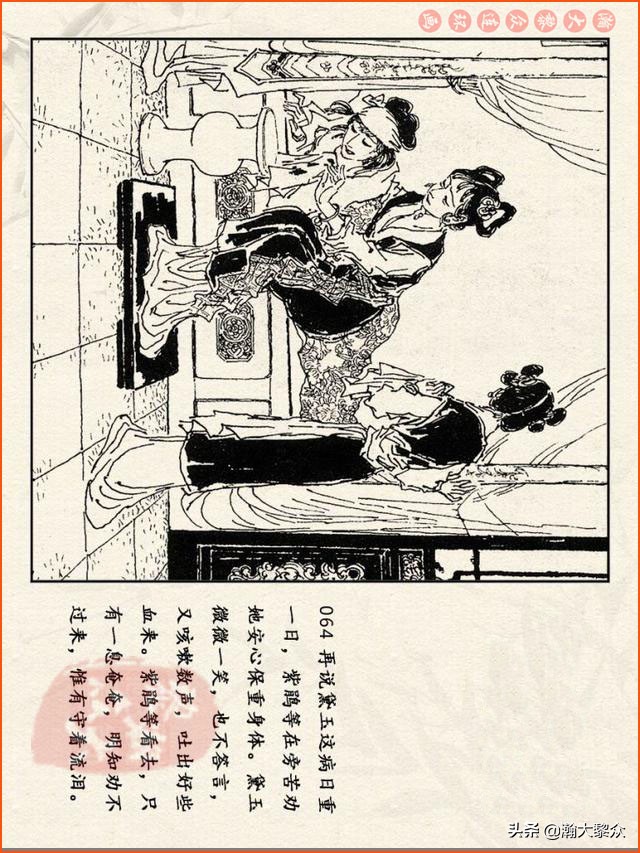 瀚大黎众连环画
064 再说黛玉这病日重
一日，紫鹃等在旁苦劝
她安心保重身体。黛玉
微微一笑，也不答言，
又咳嗽数声，吐出好些
血来。紫鹃等看去，只
有一息奄奄，明知劝不
过来，惟有守着流泪。
头条 @瀚大黎众